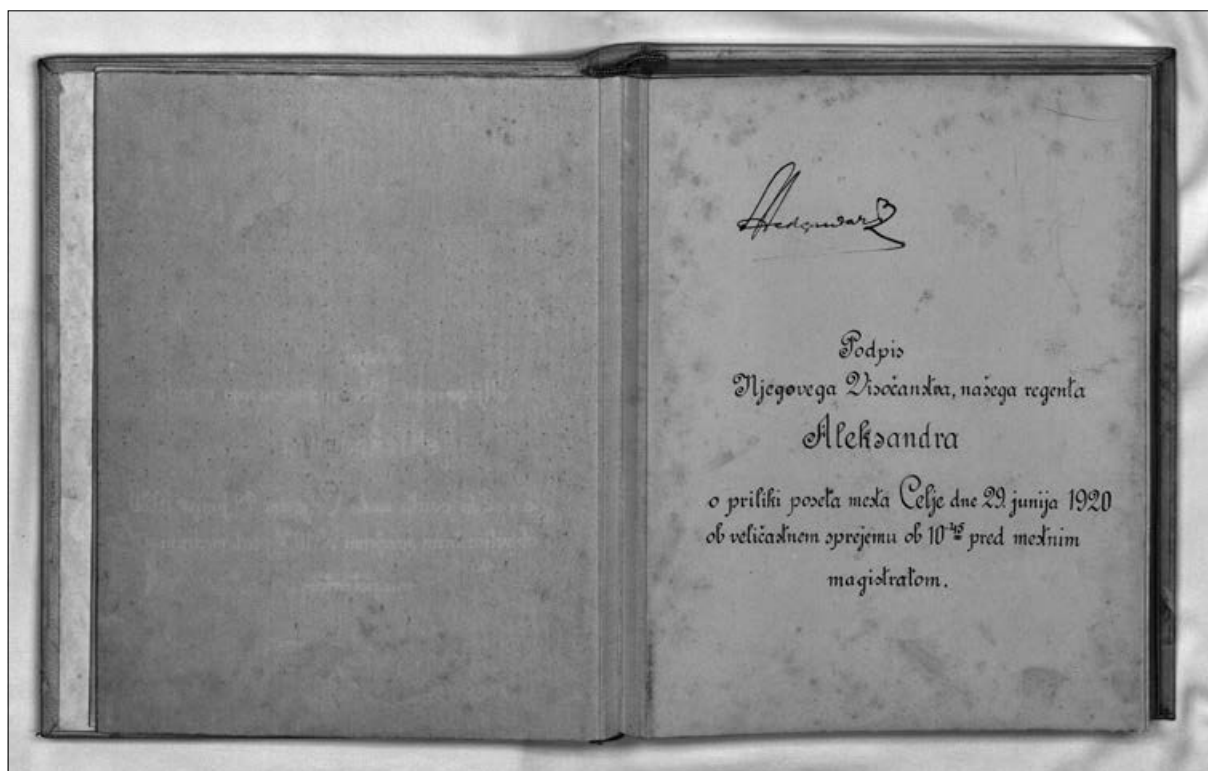 Podpis
Njegovega Visočanstva, našega regenta
Aleksandra
o priliki poseta mesta Celje dne 29. junija 1920
ob veličastnem sprejemu ob 10 45 pred mestnim
magistratom.